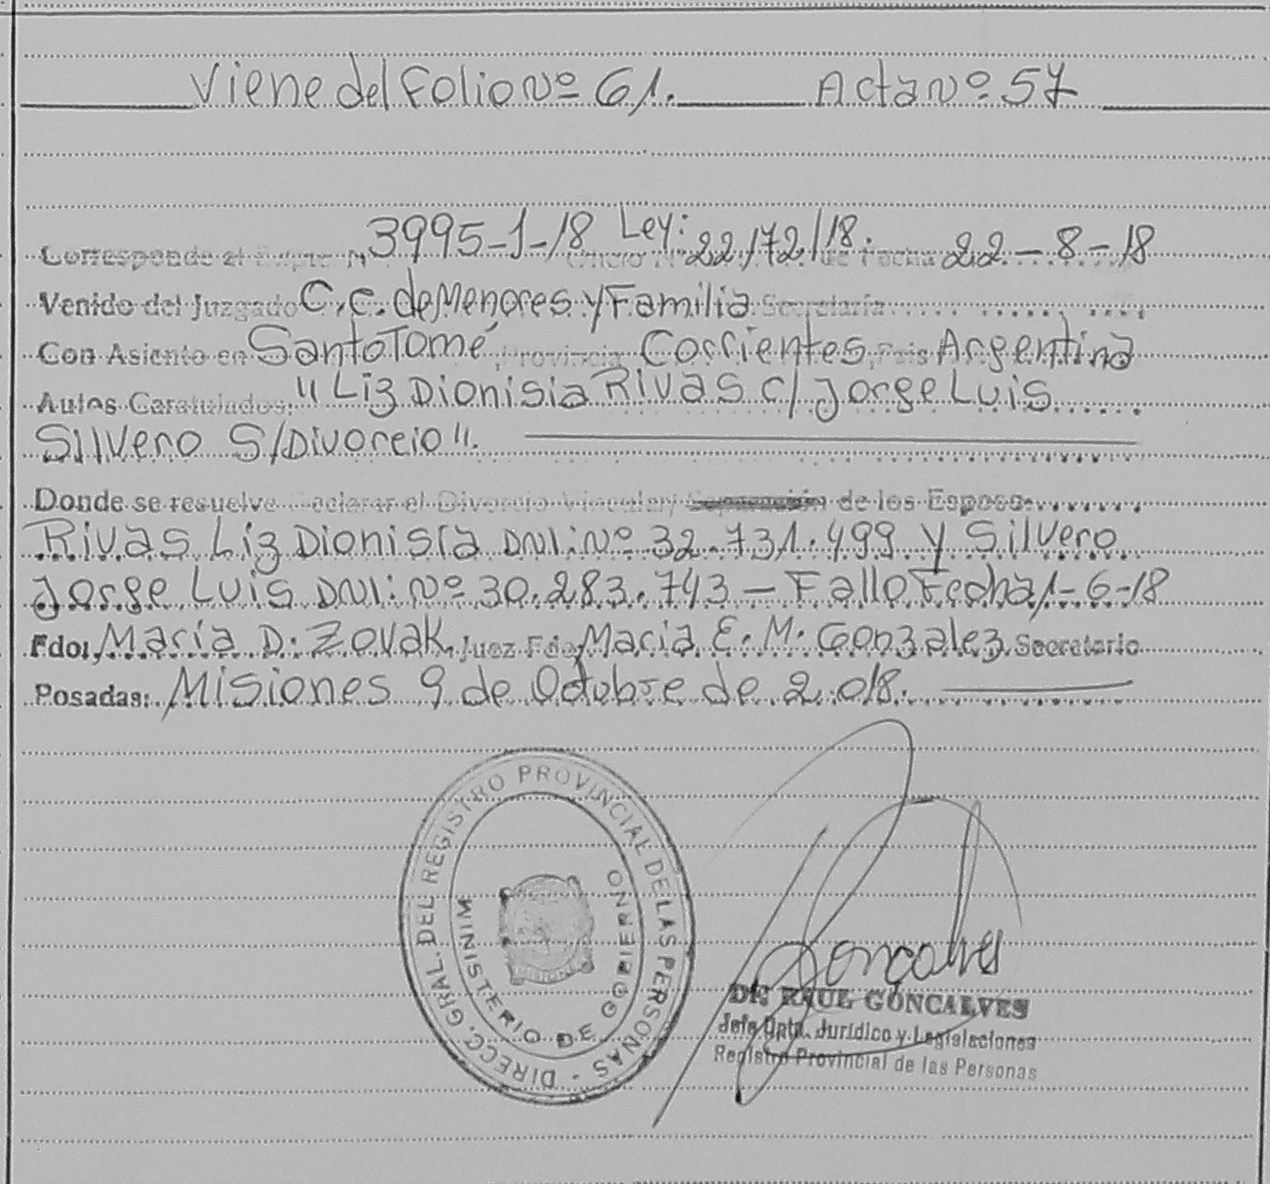 Viene del Folio Nº 61. Acta Nº 57
Corresponde al Expte Nº 3995-1-18 Ley: 22172/18. de Fecha 22-8-18
Venido del Juzgado C.C. de Menores y Familia Secretaría
Con Asiento en Santo Tomé, Provincia Corrientes, País Argentina
Autos Caratulados: "Liz Dionisia Rivas c/ Jorge Luis
Silvero S/Divorcio".
Donde se resuelve Declarar el Divorcio Vincular/ Separación de los Esposos
Rivas Liz Dionisia DNI: Nº 32.731.499 y Silvero
Jorge Luis DNI: Nº 30.283.743 - Fallo Fecha 1-6-18
Fdo: María D. Zovak, Juez Fdo, Maria E. M. Gonzalez Secretario
Posadas: Misiones 9 de Octubre de 2.018.
DIRECC. GRAL. DEL REGISTRO PROVINCIAL DE LAS PERSONAS -
MINISTERIO DE GOBIERNO
MISIONES
Gonçalves
DR. RAUL GONCALVES
Jefe Dpto. Jurídico y Legislaciones
Registro Provincial de las Personas